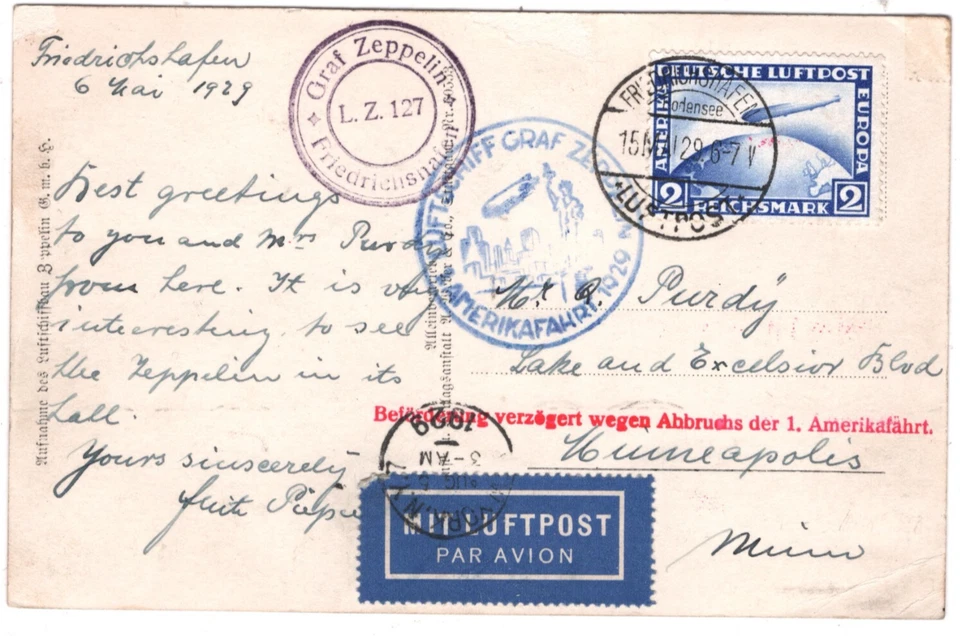 Friedrichshafen
6 Mai 1929
Best greetings
to you and Mrs Purdy
from here. It is very
interesting to see
the Zeppelin in its
hall.
Yours sincerely
Aufnahme des Luftschiffbau Zeppelin G. m. b. H.
Graf Zeppelin
L. Z. 127
Friedrichshafen
LUFTSCHIFF GRAF ZEPPELIN
AMERIKAFAHRT 1929
DEUTSCHE LUFTPOST
AMERIKA
EUROPA
2 REICHSMARK 2
FRIEDRICHSHAFEN
Bodensee
15 MAI 29 6-7 V
LUFTPOST
Purdy
Lake and Excelsior Blvd
Beförderung verzögert wegen Abbruchs der 1. Amerikafahrt.
Minneapolis
Minn
1929
3-AM
YORK, N.Y.
MIT LUFTPOST
PAR AVION